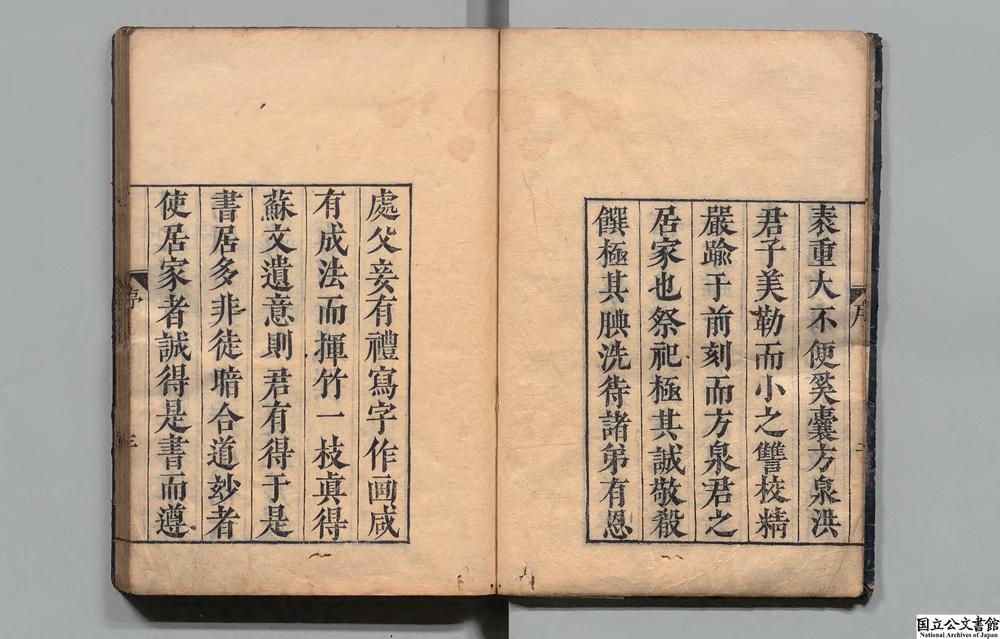 袠重大不便奚囊方泉洪
君子美勒而小之讐校精
嚴踰于前刻而方泉君之
居家也祭祀極其誠敬殽
饌極其腆洗待諸弟有恩
序
二
處父妾有禮寫字作画咸
有成法而揮竹一枝眞得
蘇文遺意則君有得于是
書居多非徒暗合道玅者
使居家者誠得是書而遵
序
三
国立公文書館
National Archives of Japan